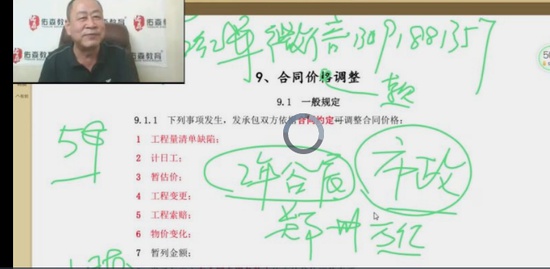 佑森教育 佑森教育
微信13091881357
9、合同价格调整
一款
9.1 一般规定
9.1.1 下列事项发生，发承包双方依据合同约定可调整合同价格：
1 工程量清单缺陷；
2 计日工；
3 暂估价；
4 工程变更；
5 工程索赔；
6 物价变化；
7 暂列金额；
市政
郑州